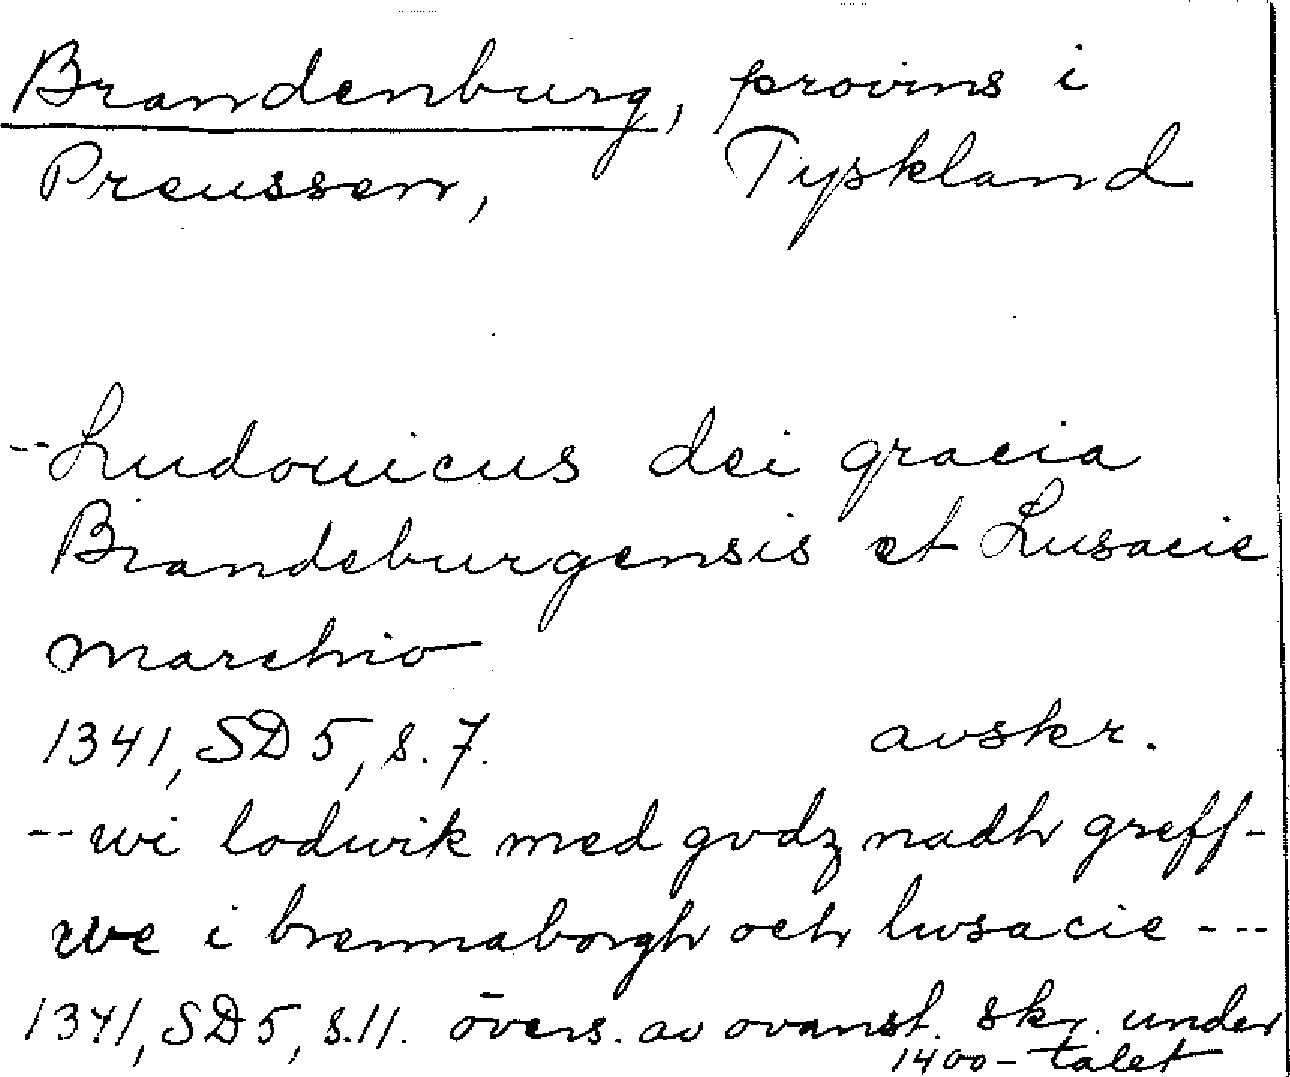 Brandenburg, provins i
Preussen, Tyskland
-- Ludouicus dei gracia
Brandeburgensis et Lusacie
marchio
1341, SD 5, s. 7. avskr.
-- wi lodwik med gvdz nadh greff-
we i brennaborgh och lwsacie ---
1341, SD 5, s. 11. övers. av ovanst. skr. under
1400-talet